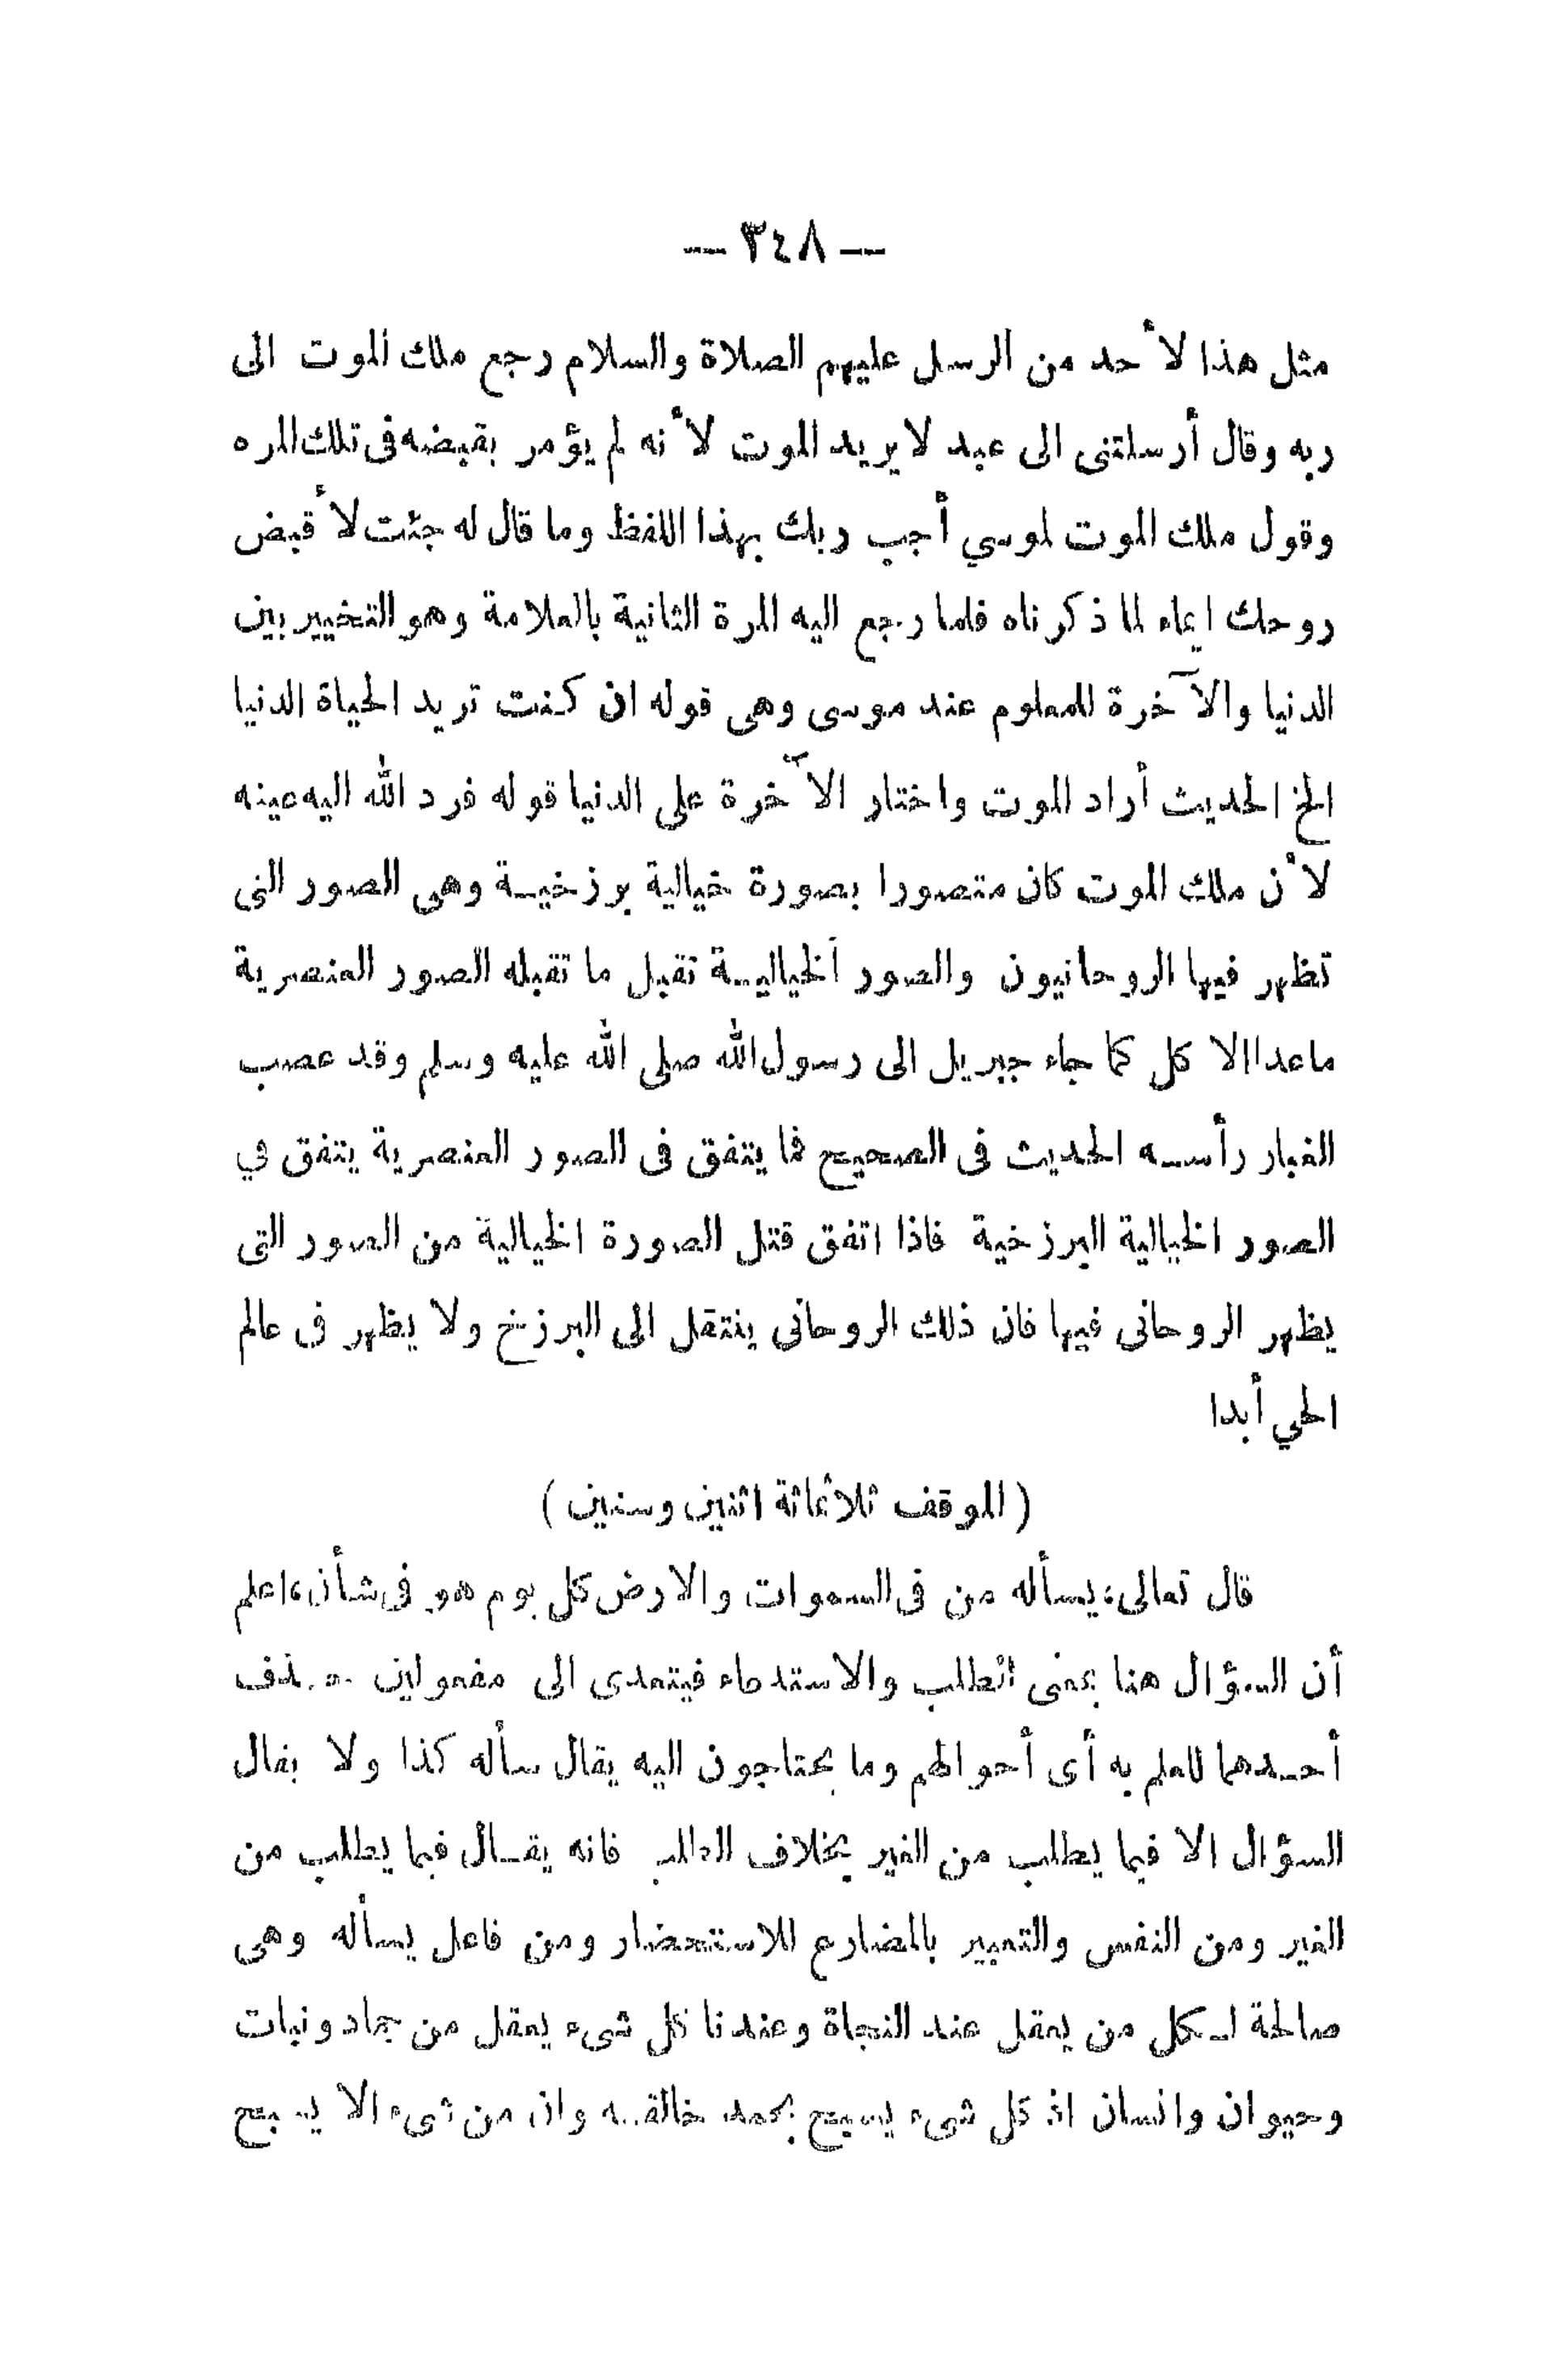 — ٣٤٨ —
مثل هذا لأحد من الرسل عليهم الصلاة والسلام رجع ملك الموت الى
ربه وقال أرسلتنى الى عبد لا يريد الموت لأنه لم يؤمر بقبضه فى تلك المره
وقول ملك الموت لموسي أجب ربك بهذا اللفظ وما قال له جئت لأقبض
روحك ايماء لما ذكرناه فلما رجع اليه المرة الثانية بالعلامة وهو التخيير بين
الدنيا والآخرة للمعلوم عند موسى وهى قوله ان كنت تريد الحياة الدنيا
الخ الحديث أراد الموت واختار الآخرة على الدنيا قوله فرد الله اليه عينه
لأن ملك الموت كان متصورا بصورة خيالية برزخيـة وهى الصور التى
تظهر فيها الروحانيون والصور الخياليـة تقبل ما تقبله الصور العنصرية
ماعدا الاكل كما جاء جبريل الى رسول الله صلى الله عليه وسلم وقد عصب
الغبار رأسـه الحديث فى الصحيح فما يتفق فى الصور العنصرية يتفق في
الصور الخيالية البرزخية فاذا اتفق قتل الصورة الخيالية من الصور التى
يظهر الروحانى فيها فان ذلك الروحانى ينتقل الى البرزخ ولا يظهر فى عالم
الحي أبدا
( الموقف ثلاثمائة اثنين وستين )
قال تعالى: يسأله من فى السموات والارض كل يوم هو فى شأن، اعلم
أن السؤال هنا بمعنى الطلب والاستدعاء فيتعدى الى مفعولين حذف
أحـدهما للعلم به أى أحوالهم وما يحتاجون اليه يقال سأله كذا ولا يقال
السؤال الا فيما يطلب من الغير بخلاف الطلب فانه يقـال فيما يطلب من
الغير ومن النفس والتعبير بالمضارع للاستحضار ومن فاعل يسأله وهى
صالحة لـكل من يعقل عند النحاة وعندنا كل شىء يعقل من جماد ونبات
وحيوان وانسان اذ كل شىء يسبح بحمد خالقـه وان من شىء الا يسبح